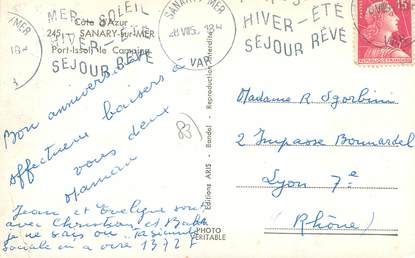 Côte d'Azur
245 - SANARY-sur-MER
Port-Issol, le Camping
MER - SOLEIL
HIVER - ÉTÉ
SEJOUR RÊVÉ
SANARY MER
VAR
HIVER - ÉTÉ
SEJOUR RÊVÉ
15F
Bon anniversaire
affectueux baisers à
vous deux
Maman
83)
Jean et Evelyne sont
avec Christian et
je ne sais où
Sociale en a
Editions ARIS - Bandol - Reproduction interdite
PHOTO
VERITABLE
Madame R Sgorbinini
2 Impasse Bonnardel
Lyon 7e
(Rhône)